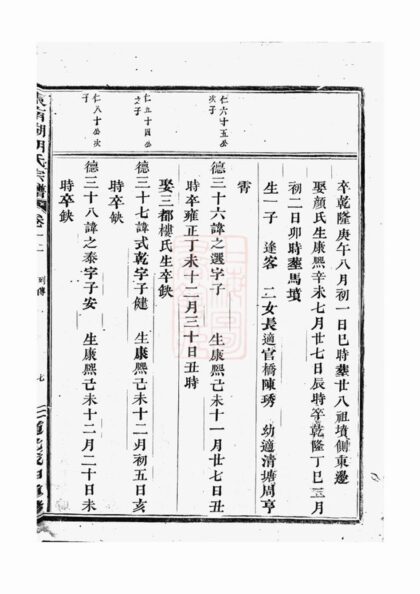 卒乾隆庚午八月初一日巳時葬廿八祖墳側東邊
娶顏氏生康熙辛未七月廿七日辰時卒乾隆丁巳三月
初二日卯時葬馬墳
生一子　逢客　二女長適官橋陳琇　幼適清塘周亨
霄
仁六十五公次子
德三十六諱之選字子　生康熙己未十一月廿七日丑
時卒雍正丁未十二月三十日丑時
娶三都樓氏生卒缺
仁五十四公之子
德三十七諱式乾字子健　生康熙己未十二月初五日亥
時卒缺
仁八十公次子
德三十八諱之泰字子安　生康熙己未十二月二十日未
時卒缺
湖胡氏宗譜　卷一二　列傳　七